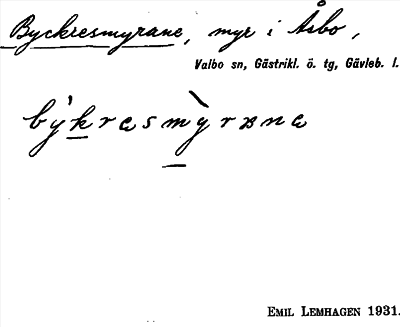 Byckresmyrane, myr i Åsbo,
Valbo sn, Gästrikl. ö. tg, Gävleb. l.
bý́kræsmỳrænæ
EMIL LEMHAGEN 1931.